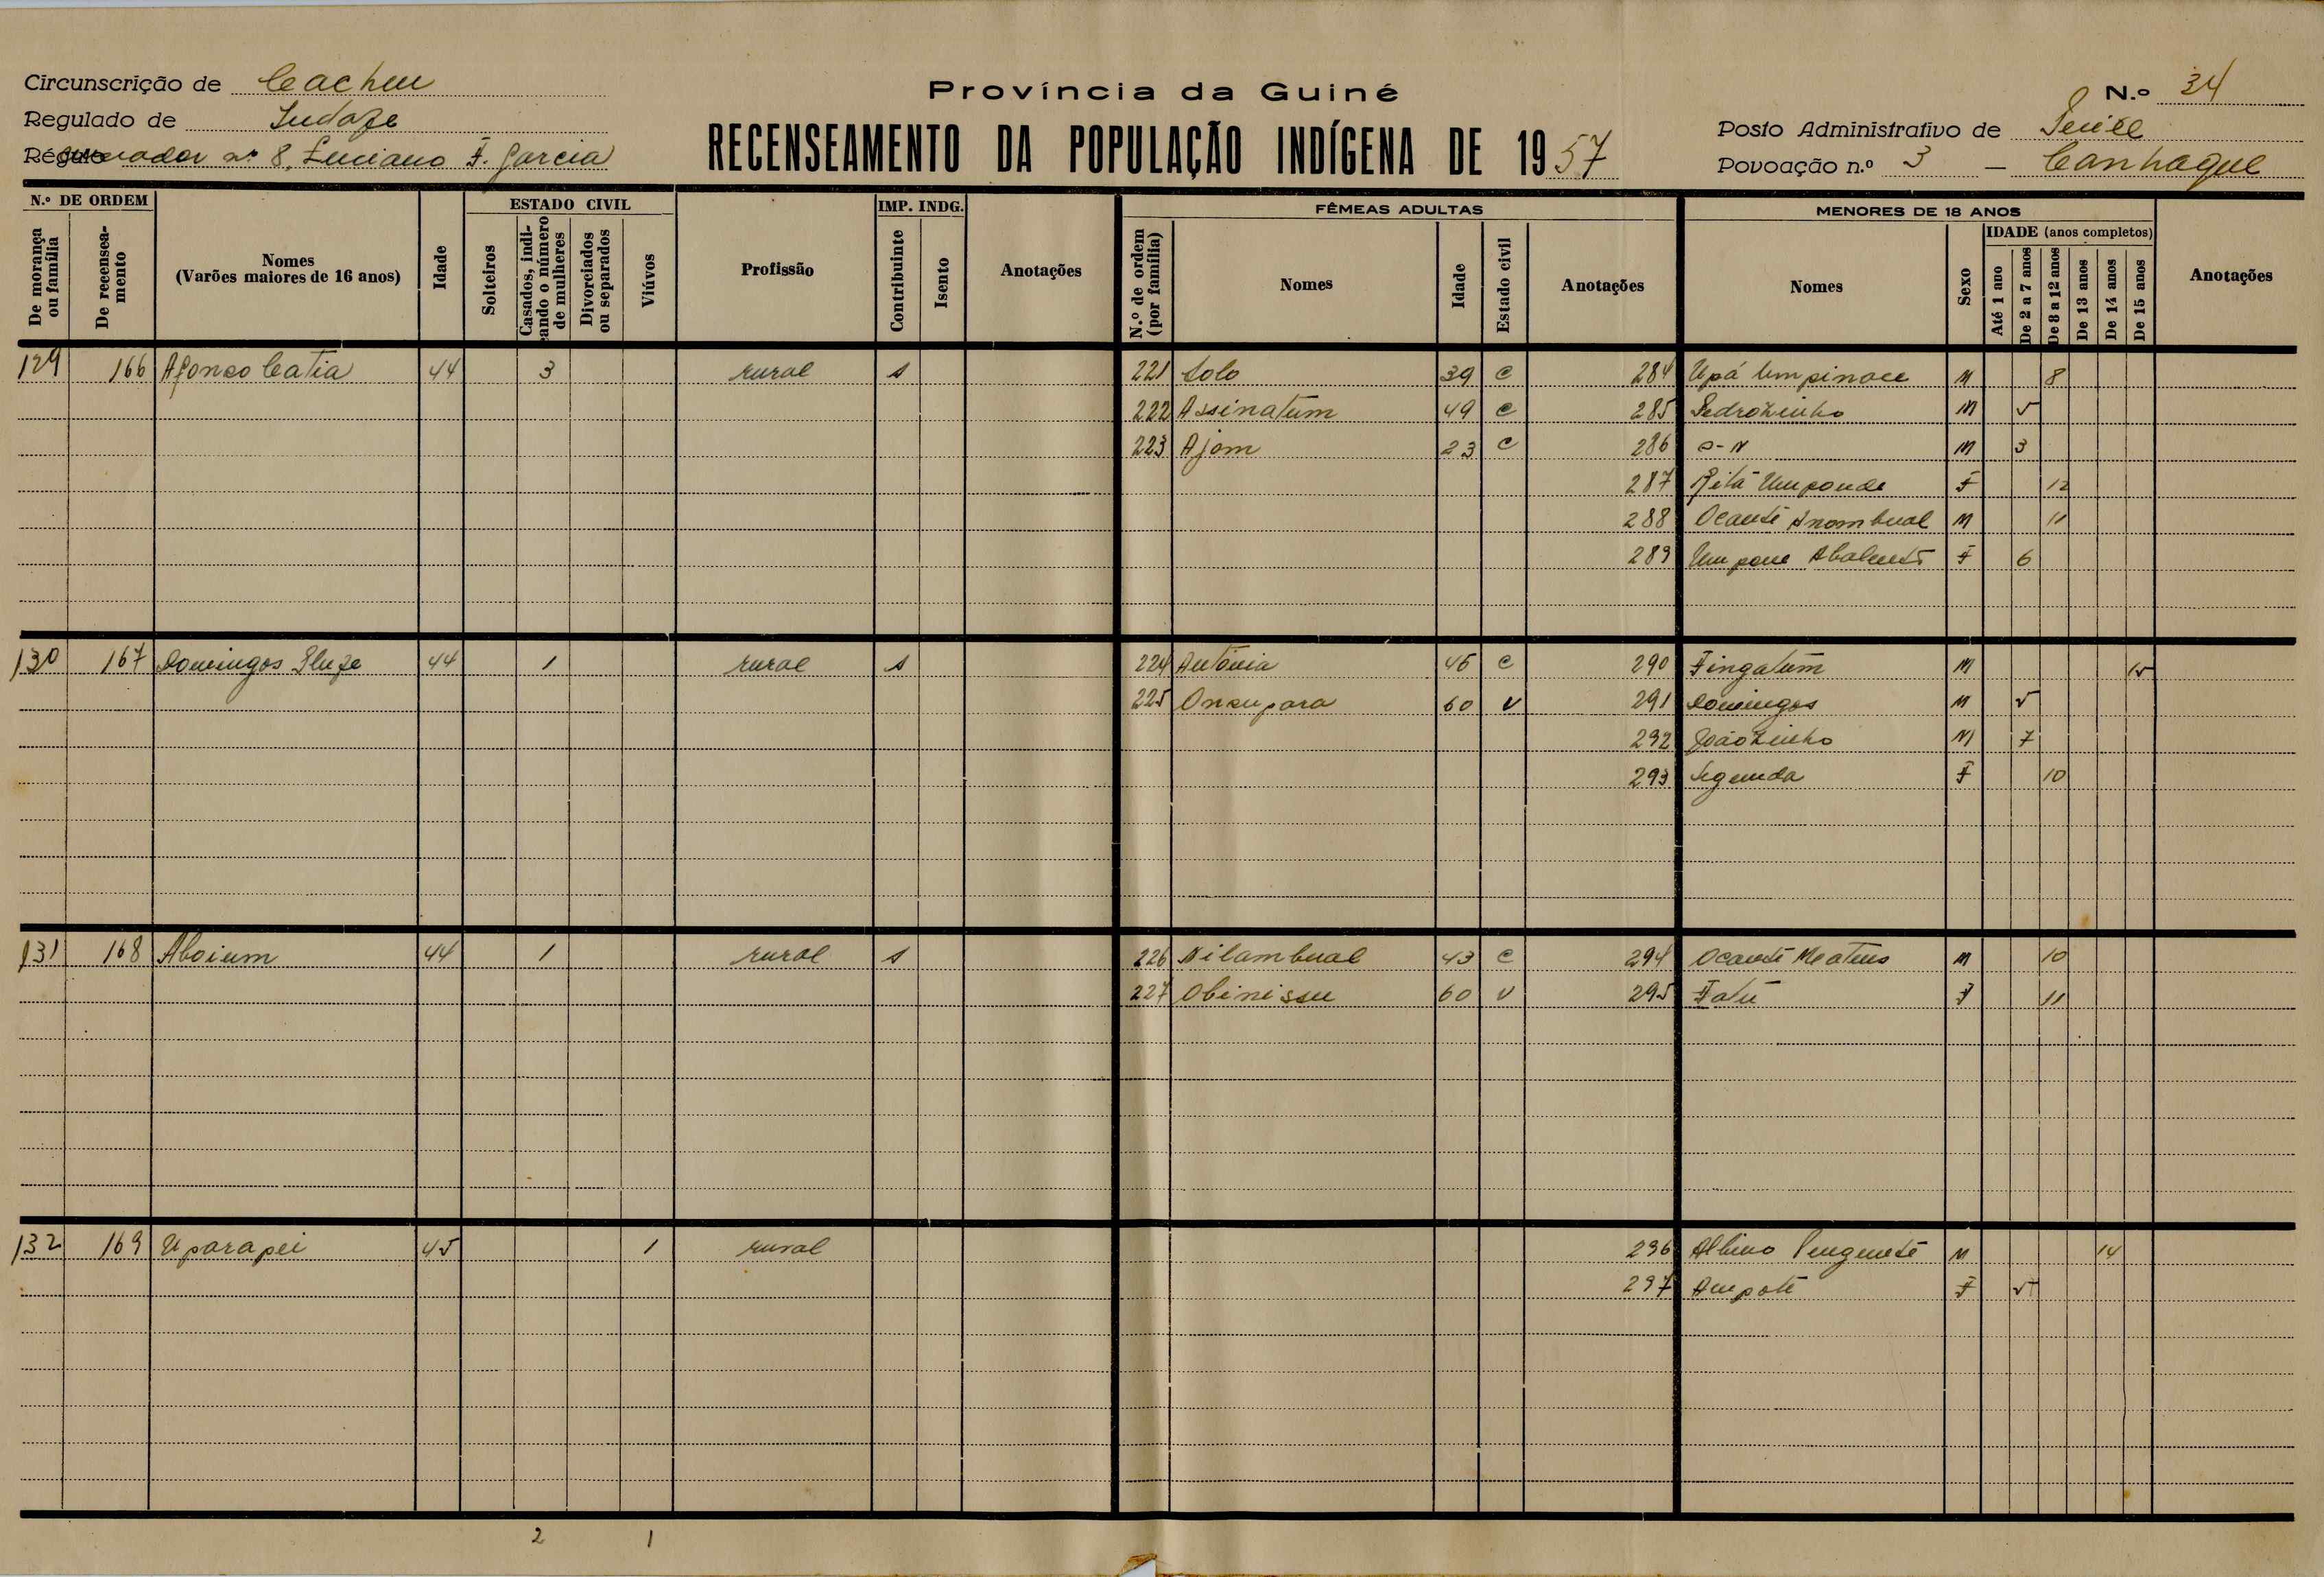 Circunscrição de Cacheu
Província da Guiné
N.º 34
Regulado de
Posto Administrativo de
n.º 8, Luciano F. Garcia
RECENSEAMENTO DA POPULAÇÃO INDÍGENA DE 1957
Povoação n.º 3 — Canhaque
N.º DE ORDEM
De morança ou família
De recenseamento
Nomes
(Varões maiores de 16 anos)
Idade
ESTADO CIVIL
Solteiros
Casados, indicando o número de mulheres
Divorciados ou separados
Viúvos
Profissão
IMP. INDG.
Contribuinte
Isento
Anotações
FÊMEAS ADULTAS
N.º de ordem (por família)
Nomes
Idade
Estado civil
Anotações
MENORES DE 18 ANOS
Nomes
Sexo
IDADE (anos completos)
Até 1 ano
De 2 a 7 anos
De 8 a 12 anos
De 13 anos
De 14 anos
De 15 anos
Anotações
129 166 Afonso Catia 44 3 rural s 221 Solo 39 C 284 Upá M 8
222 Assinatum 49 C 285 Pedrozinho M 5
223 Ajom 23 C 286 S-N M 3
287 Rita Umponde F 12
288 Ocanté M 11
289 F 6
130 167 Domingos 44 1 rural s 224 Antónia 46 C 290 Fingatum M 15
225 Onsupara 60 V 291 Domingos M 5
292 Joãozinho M 7
293 Segunda F 10
131 168 Aboium 44 1 rural s 226 Nilambual 43 C 294 Ocanté Mateus M 10
227 Obinissu 60 V 295 Fatú F 11
132 169 Uparapei 45 1 rural 296 Albino M 14
297 Ampoté F 5
2 1